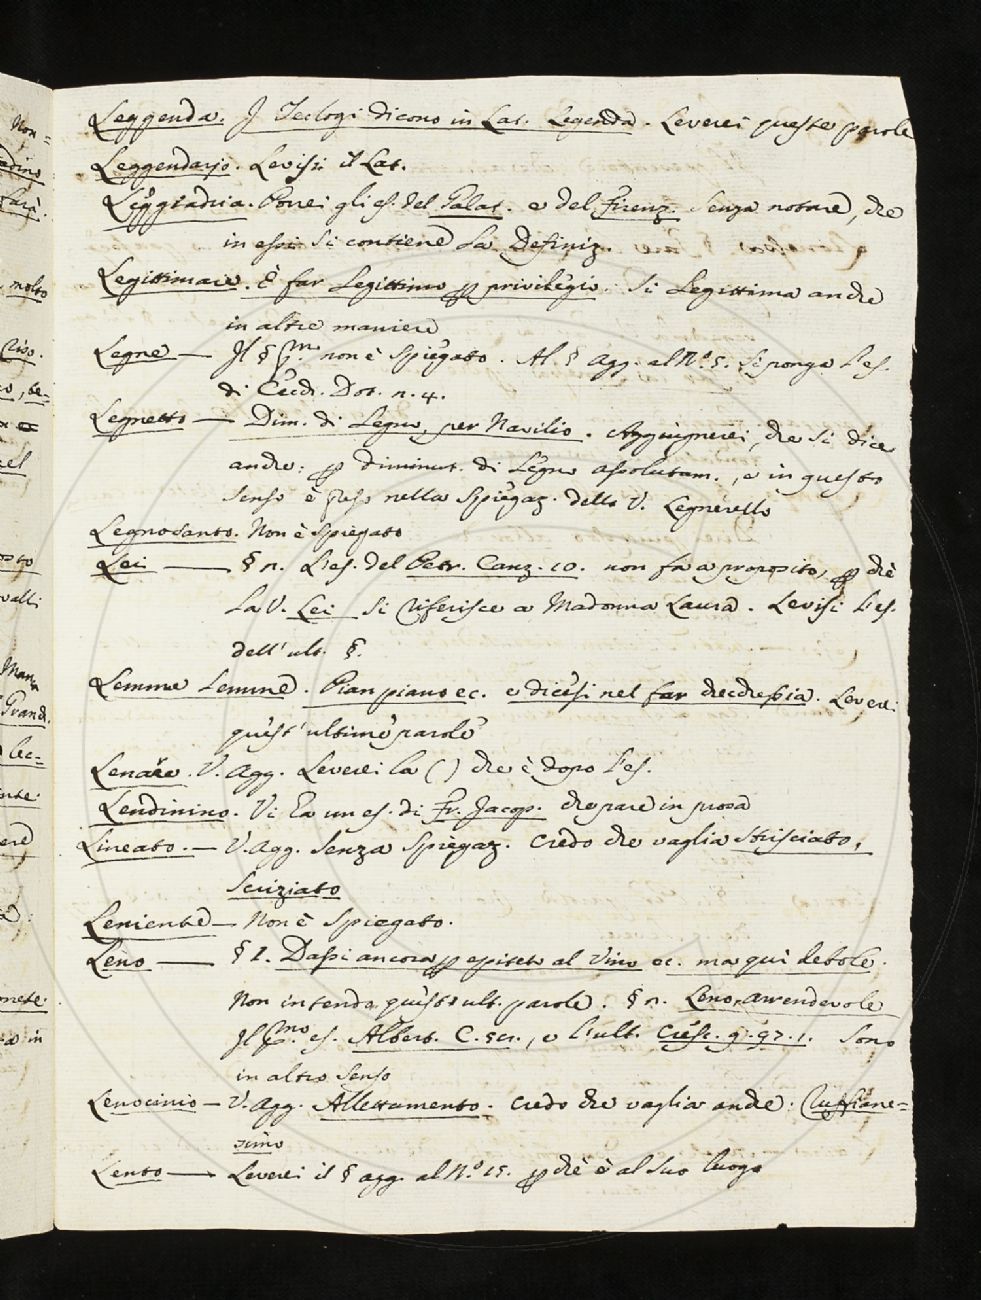 Non=
Leggenda. I Teologi dicono in Lat. Legenda. Leverei queste parole
Leggendario. Levisi il Lat.
Leggiadria. Porrei gli es. del Galat. e del Firenz. senza notare, che
in essi si contiene la Definiz.
Legittimare. È far legittimo p privilegio. Si legittima anche
molto
in altre maniere
Legne — Il § pmo. non è spiegato. Al § agg. al N.º 5. si ponga l'es.
di Cecch. Dot. n. 4.
Legnetto — Dim. di Legno, per Navilio. Aggiugnerei, che si dice
anche: p diminut. di Legno assolutam., e in questo
senso è preso nella spiegaz. della V. Legnerello
Legnosanto. Non è spiegato
Lei — § n. L'es. del Petr. Canz. 10. non fa a proposito, p chè
la V. Lei si riferisce a Madonna Laura. Levisi l'es.
dell'ult. §.
Lemme Lemme. Pian piano ec. e dicesi nel far checchessia. Leverei
quest'ultime parole
Grand.
Lenare. V. Agg. Leverei la ( ) che è dopo l'es.
Lendinino. Vi ha un es. di Fr. Jacop. che pare in prosa
Lineato. — V. agg. senza spiegaz. Credo che vaglia strisciato,
screziato
Leniente — Non è spiegato.
Leno — § 1. Dassi ancora p epiteto al Vino ec. ma quì debole.
Non intendo quest'ult. parole. § n. Leno, arrendevole
Il pmo. es. Albert. C. 5cr., e l'ult. Cresc. 9. 97. 1. sono
in altro senso
Lenocinio — V. agg. Allettamento. Credo che vaglia anche: Ruffiane=
simo
Lento — Leverei il § agg. al N.º 15. p chè è al suo luogo